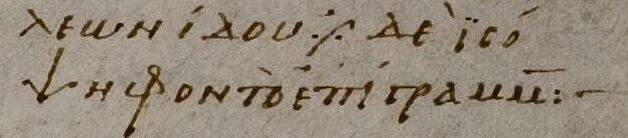 λεωνίδου ·/· δὲ ϊσό
ψηφον τὸ ἐπίγραμμ̅:–